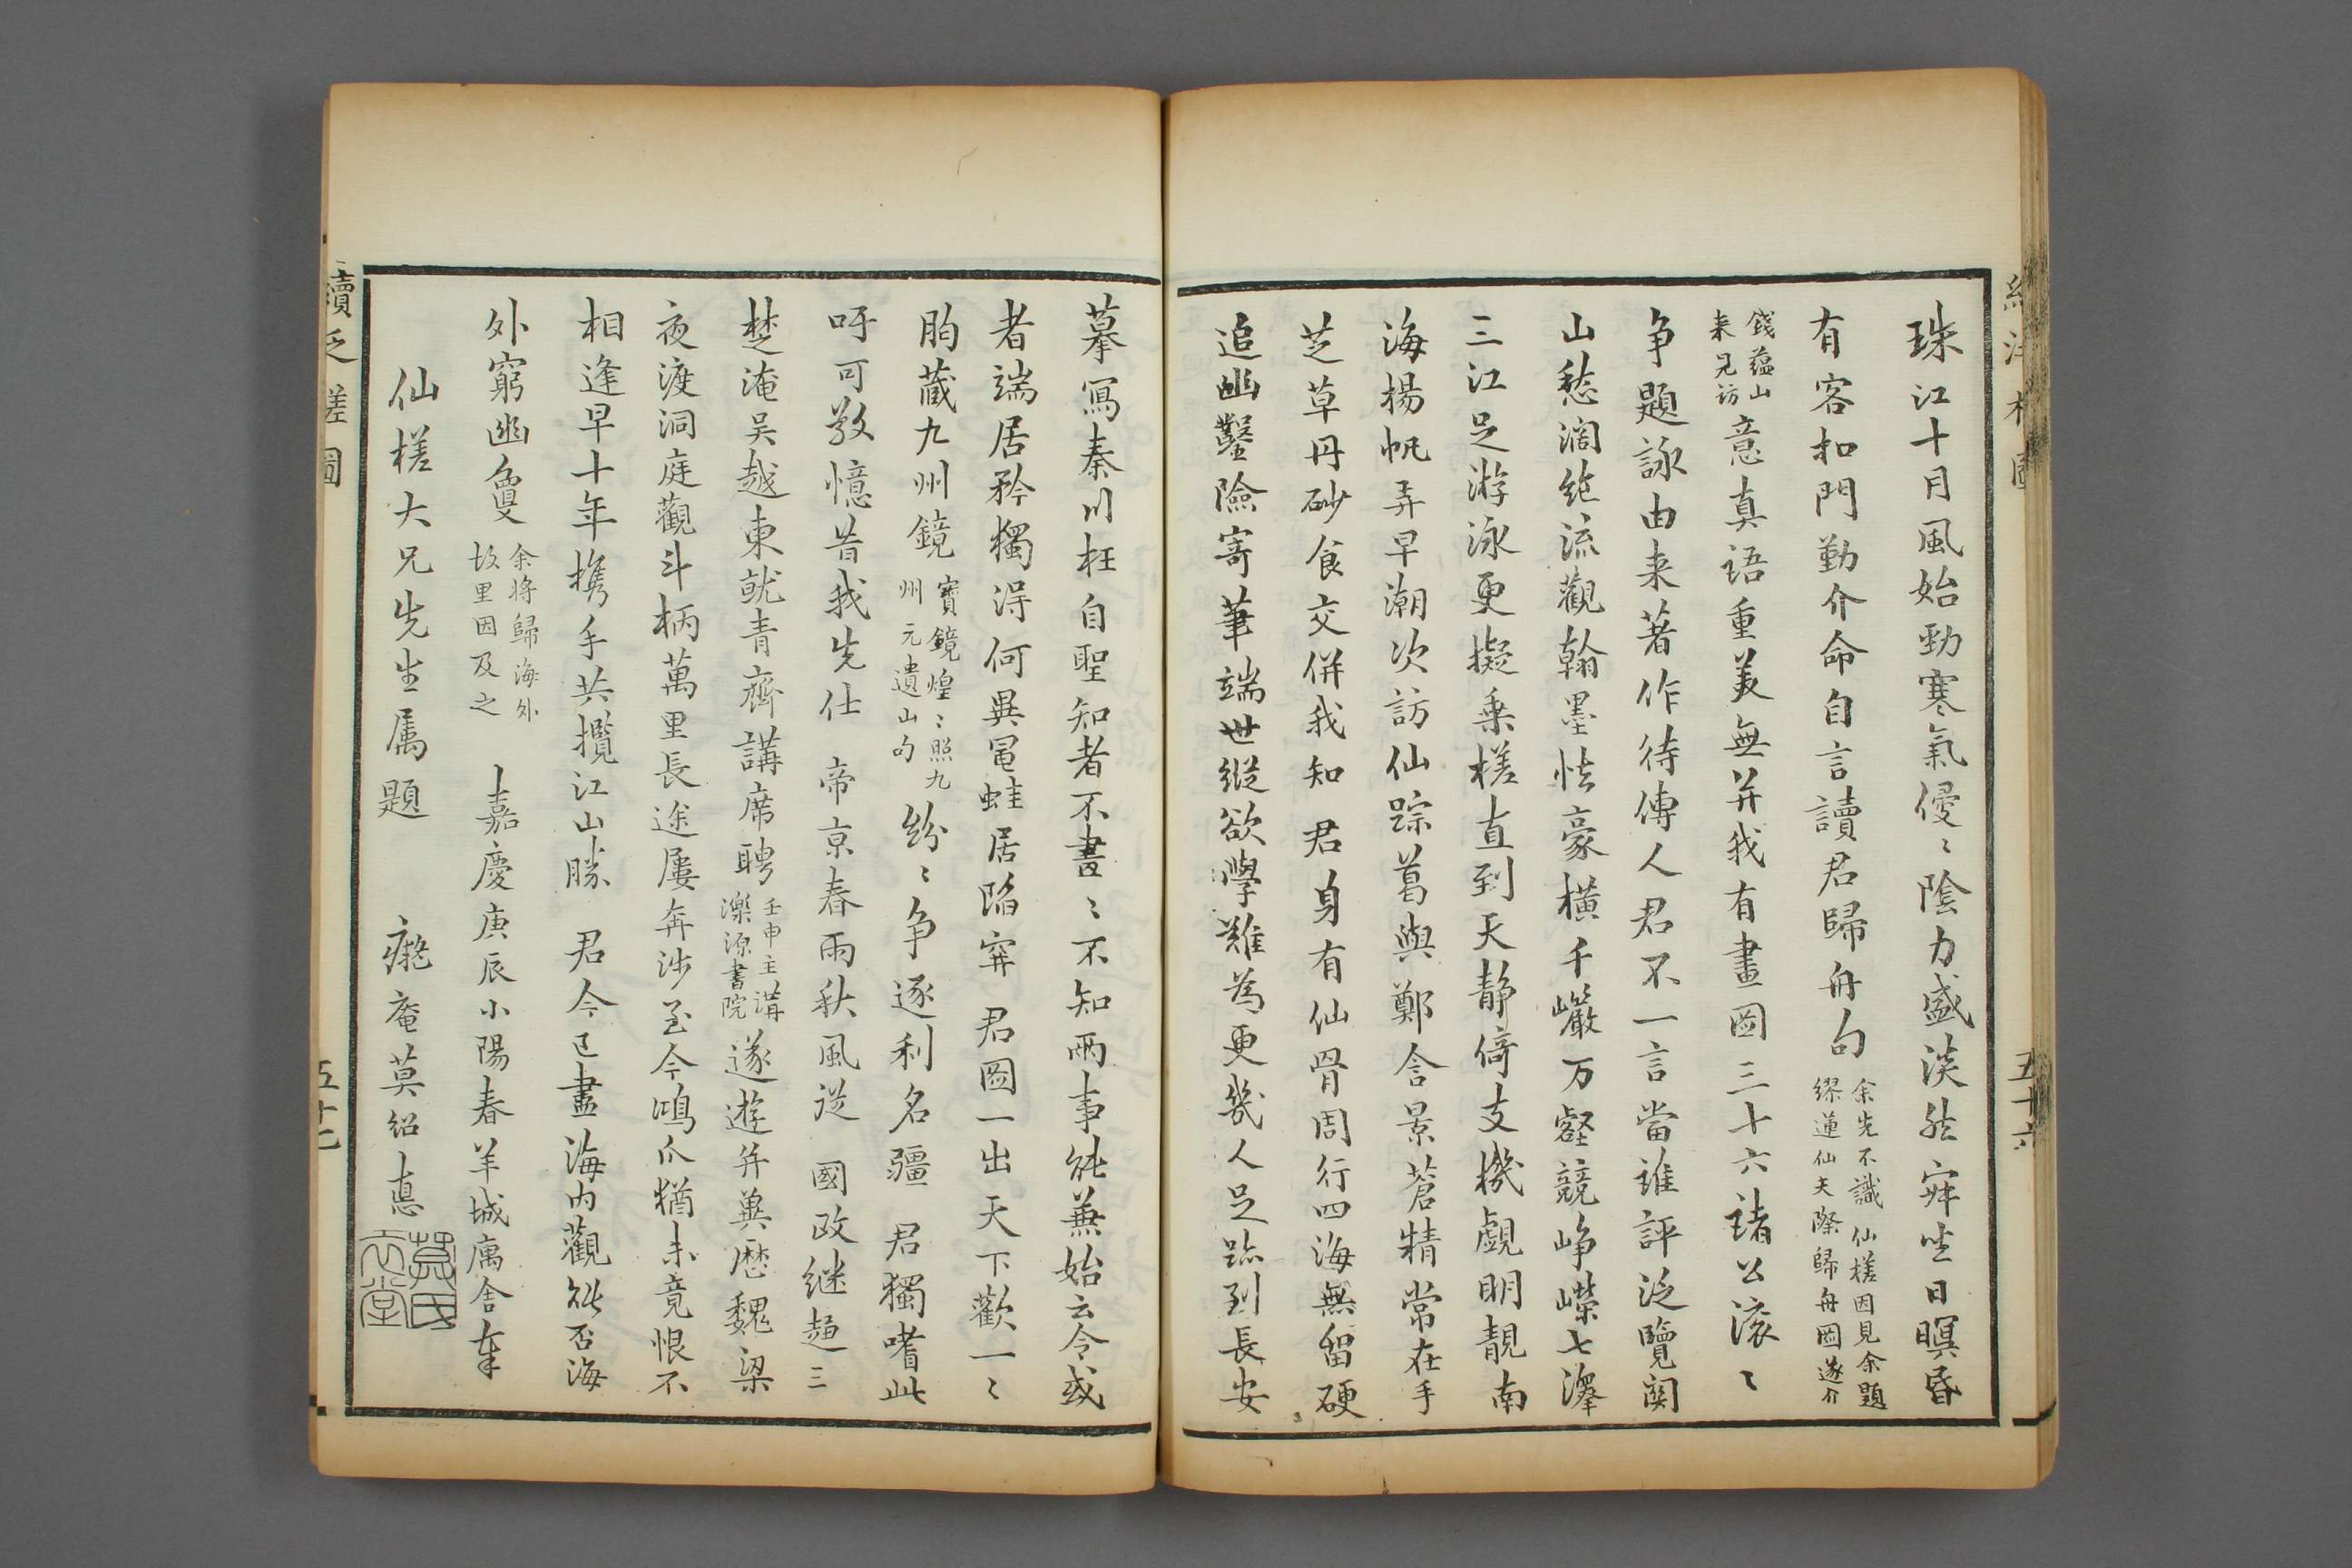 珠江十月風始勁寒氣侵〻陰力盛淡然寐坐日暝昏
有客扣門勤介命自言讀君歸舟句
余先不識仙槎因見余題
繆蓮仙天際歸舟圖遂介
錢蘊山
来見訪
意真语重美無并我有畫圖三十六諸公滚〻
争題詠由来著作待傳人君不一言當誰評泛覽関
山愁濶絶流觀翰墨怯豪横千巖万壑競峥嶸七澤
三江足游泳更擬乗槎直到天静倚支機覷明靚南
海楊帆弄早潮次訪仙踪葛與鄭含景蒼精常在手
芝草丹砂食交併我知君身有仙骨周行四海無留硬
追幽鑿險寄筆端世縱欲學難為更幾人足跡到長安
摹寫秦川枉自聖知者不畫〻不知兩事能兼始云令或
者端居矜獨淂何異黽蛙居陷穽君圖一出天下歡一〻
胷藏九州鏡
寶鏡煌〻照九
州元遺山句
紛〻争逐利名疆君獨嗜此
吁可敬憶昔我先仕帝京春雨秋風從國政继趋三
楚淹吴越東就青齊講席聘
壬申主講
濼源書院
遂遊并冀歷魏梁
夜渡洞庭觀斗柄萬里長途屢奔涉至今鴻爪猶未竟恨不
相逢早十年携手共攬江山勝君今已盡海内觀能否海
外窮幽夐
余将歸海外
故里因及之
嘉慶庚辰小陽春羊城寓舍奉
仙槎大兄先生属題
癡庵莫绍悳
莫氏
續泛槎圖
五十六
五十七